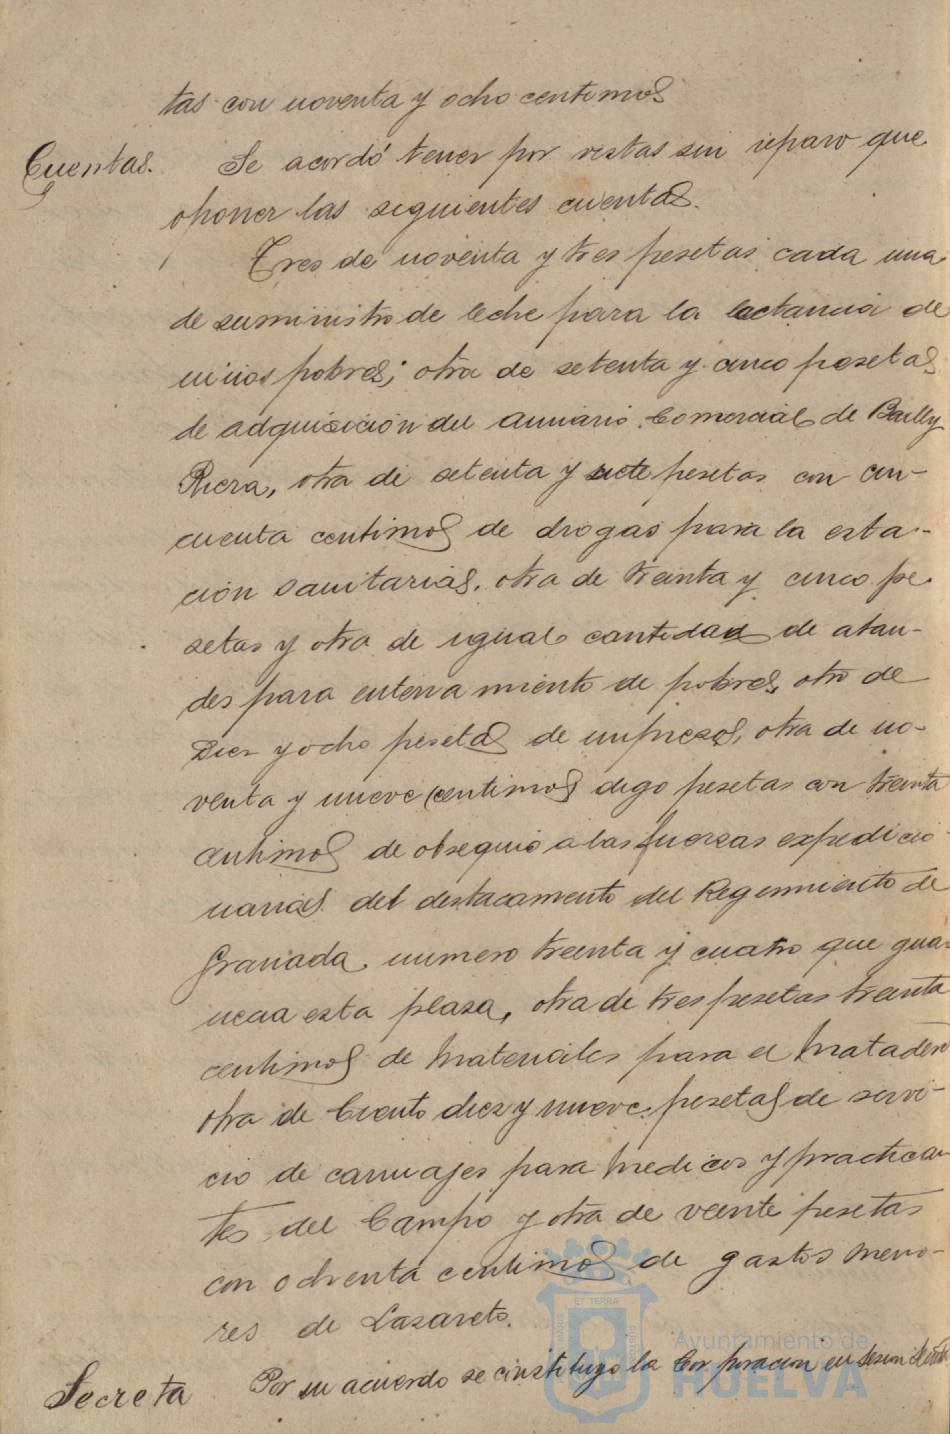 tas con noventa y ocho centimos
Cuentas. Se acordó tener por vistas sin reparo que
oponer las siguientes cuentas.
Tres de noventa y tres pesetas cada una
de suministro de leche para la lactancia de
niños pobres; otra de setenta y cinco pesetas
de adquisición del Anuario Comercial de Bailly
Riera, otra de setenta y siete pesetas con cin-
cuenta centimos de drogas para la esta-
ción sanitarias, otra de treinta y cinco pe
setas y otra de igual cantidad de atau-
des para enterramiento de pobres, otro de
Diez y ocho pesetas de impresos, otra de no-
venta y nueve centimos digo pesetas con treinta
centimos de obsequio a las fuerzas expedicio
narias del destacamento del Regimiento de
Granada numero treinta y cuatro que guar
necia esta plaza, otra de tres pesetas treinta
centimos de Materiales para el Matadero
otra de Ciento diez y nueve pesetas de servi-
cio de carruajes para Medicos y practican
tes del Campo y otra de veinte pesetas
con ochenta centimos de gastos meno-
res de Lazareto.
Secreta Por su acuerdo se constituyo la Corporacion en sesion
ET TERRA
Ayuntamiento de
HUELVA